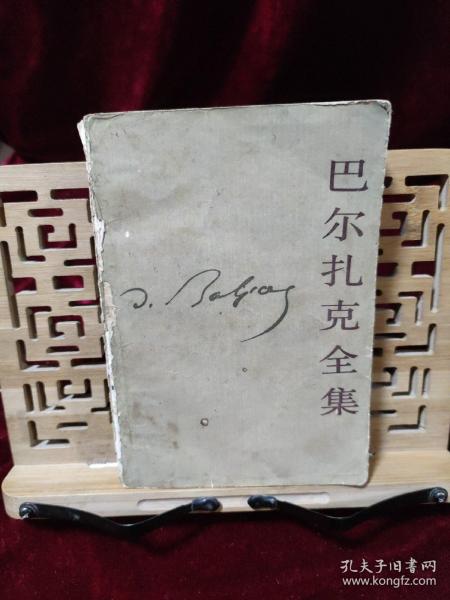 巴尔扎克全集
D. Balzac
孔夫子旧书网
www.kongfz.com